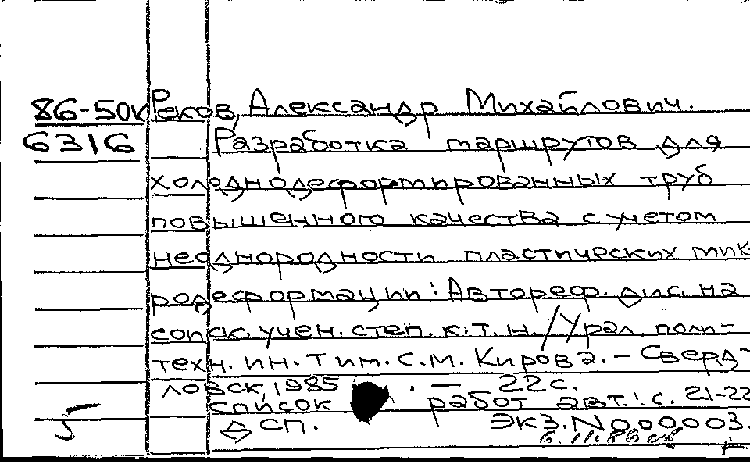 86-50к Реков, Александр Михайлович.
6316 Разработка маршрутов для
холоднодеформированных труб
повышенного качества с учетом
неоднородности пластических мик
родеформации: Автореф. дис. на
соиск. учен. степ. к.т.н. / Урал. поли-
техн. ин.т им. С.М. Кирова. - Сверд-
ловск, 1985. - 22 с.
Список работ авт.: с. 21-22
5 ДСП. Экз. N 000003.